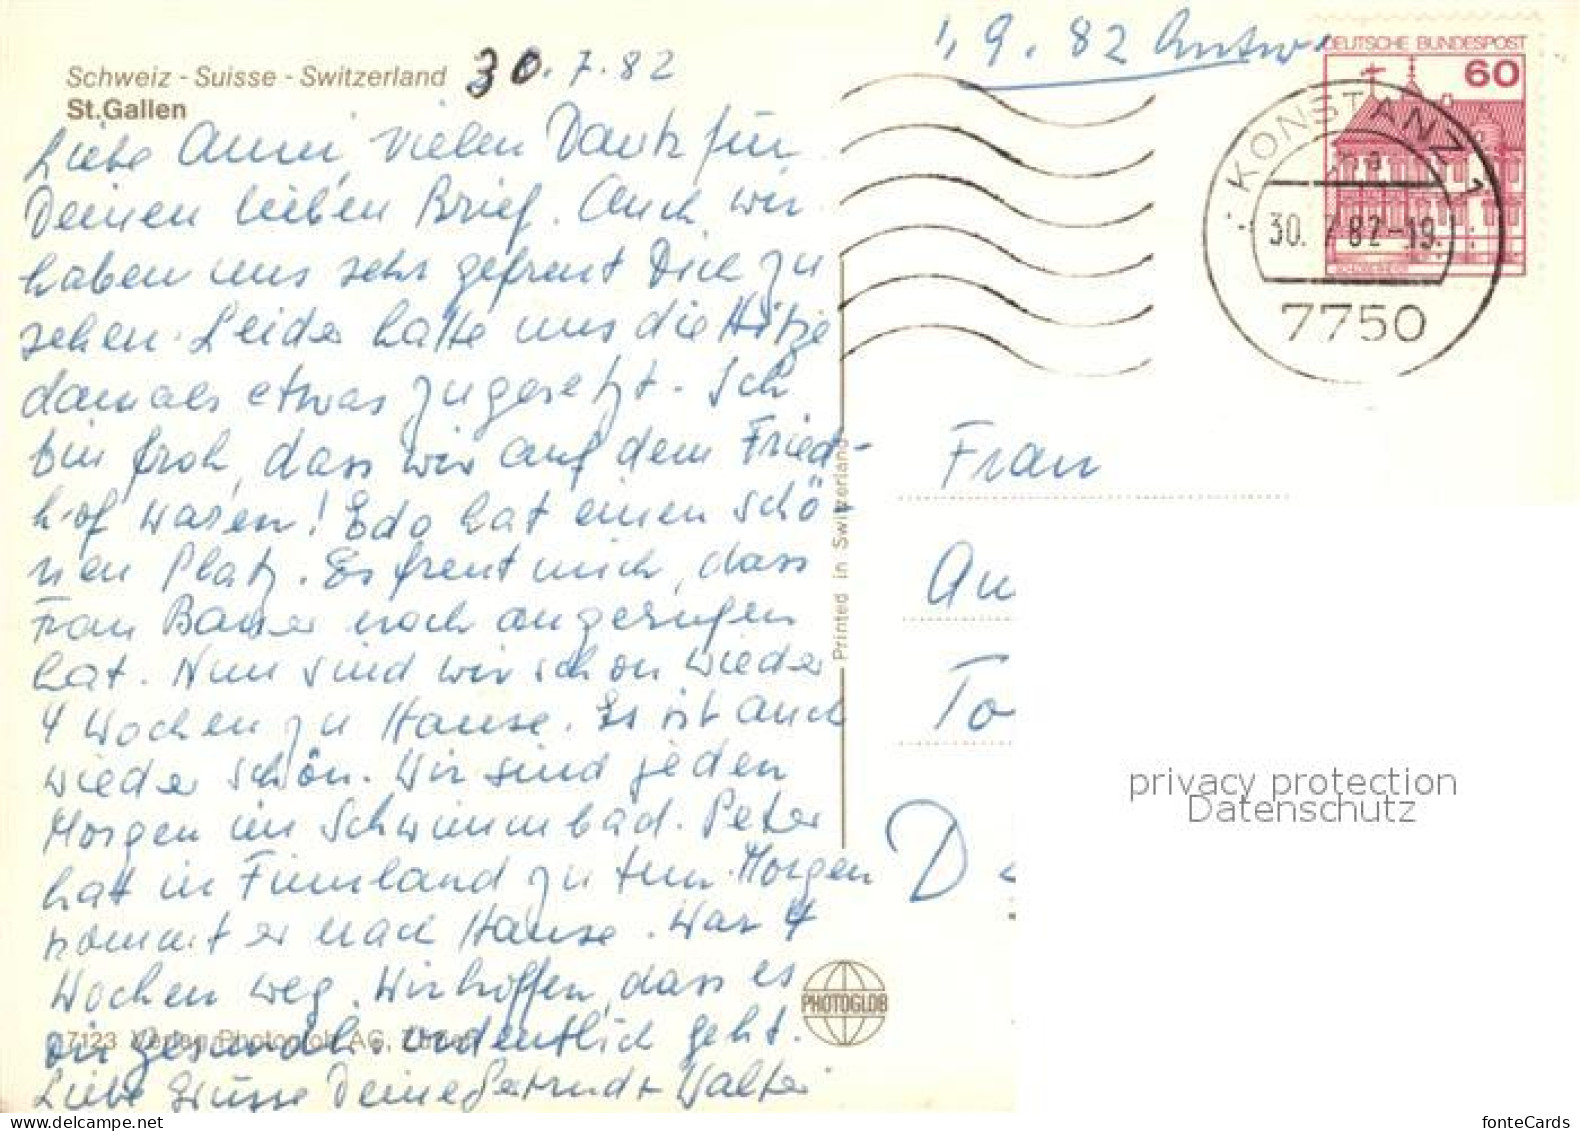 Schweiz - Suisse - Switzerland
St.Gallen
30.7.82
1,9.82 Antw.
DEUTSCHE BUNDESPOST
60
KONSTANZ 1
30.7.82-19
7750
Liebe Anni, vielen Dank für
Deinen lieben Brief. Auch wir
haben uns sehr gefreut Dich zu
sehen. Leider hatte uns die Hitze
damals etwas zugesetzt. Ich
bin froh, dass wir auf dem Fried-
hof waren! Edo hat einen schö-
nen Platz. Es freut mich, dass
Frau Bauer noch angerufen
hat. Nun sind wir schon wieder
4 Wochen zu Hause. Es ist auch
wieder schön. Wir sind jeden
Morgen im Schwimmbad. Peter
hat in Finnland zu tun. Morgen
kommt er nach Hause. War 4
Wochen weg. Wir hoffen, dass es
Dir gesundh. ordentlich geht.
Liebe Grüsse Deine Gertrud + Walter
17123 Verlag Photoglob AG, Zürich
PHOTOGLOB
Printed in Switzerland
Frau
An
To
D
privacy protection
Datenschutz
fonteCards